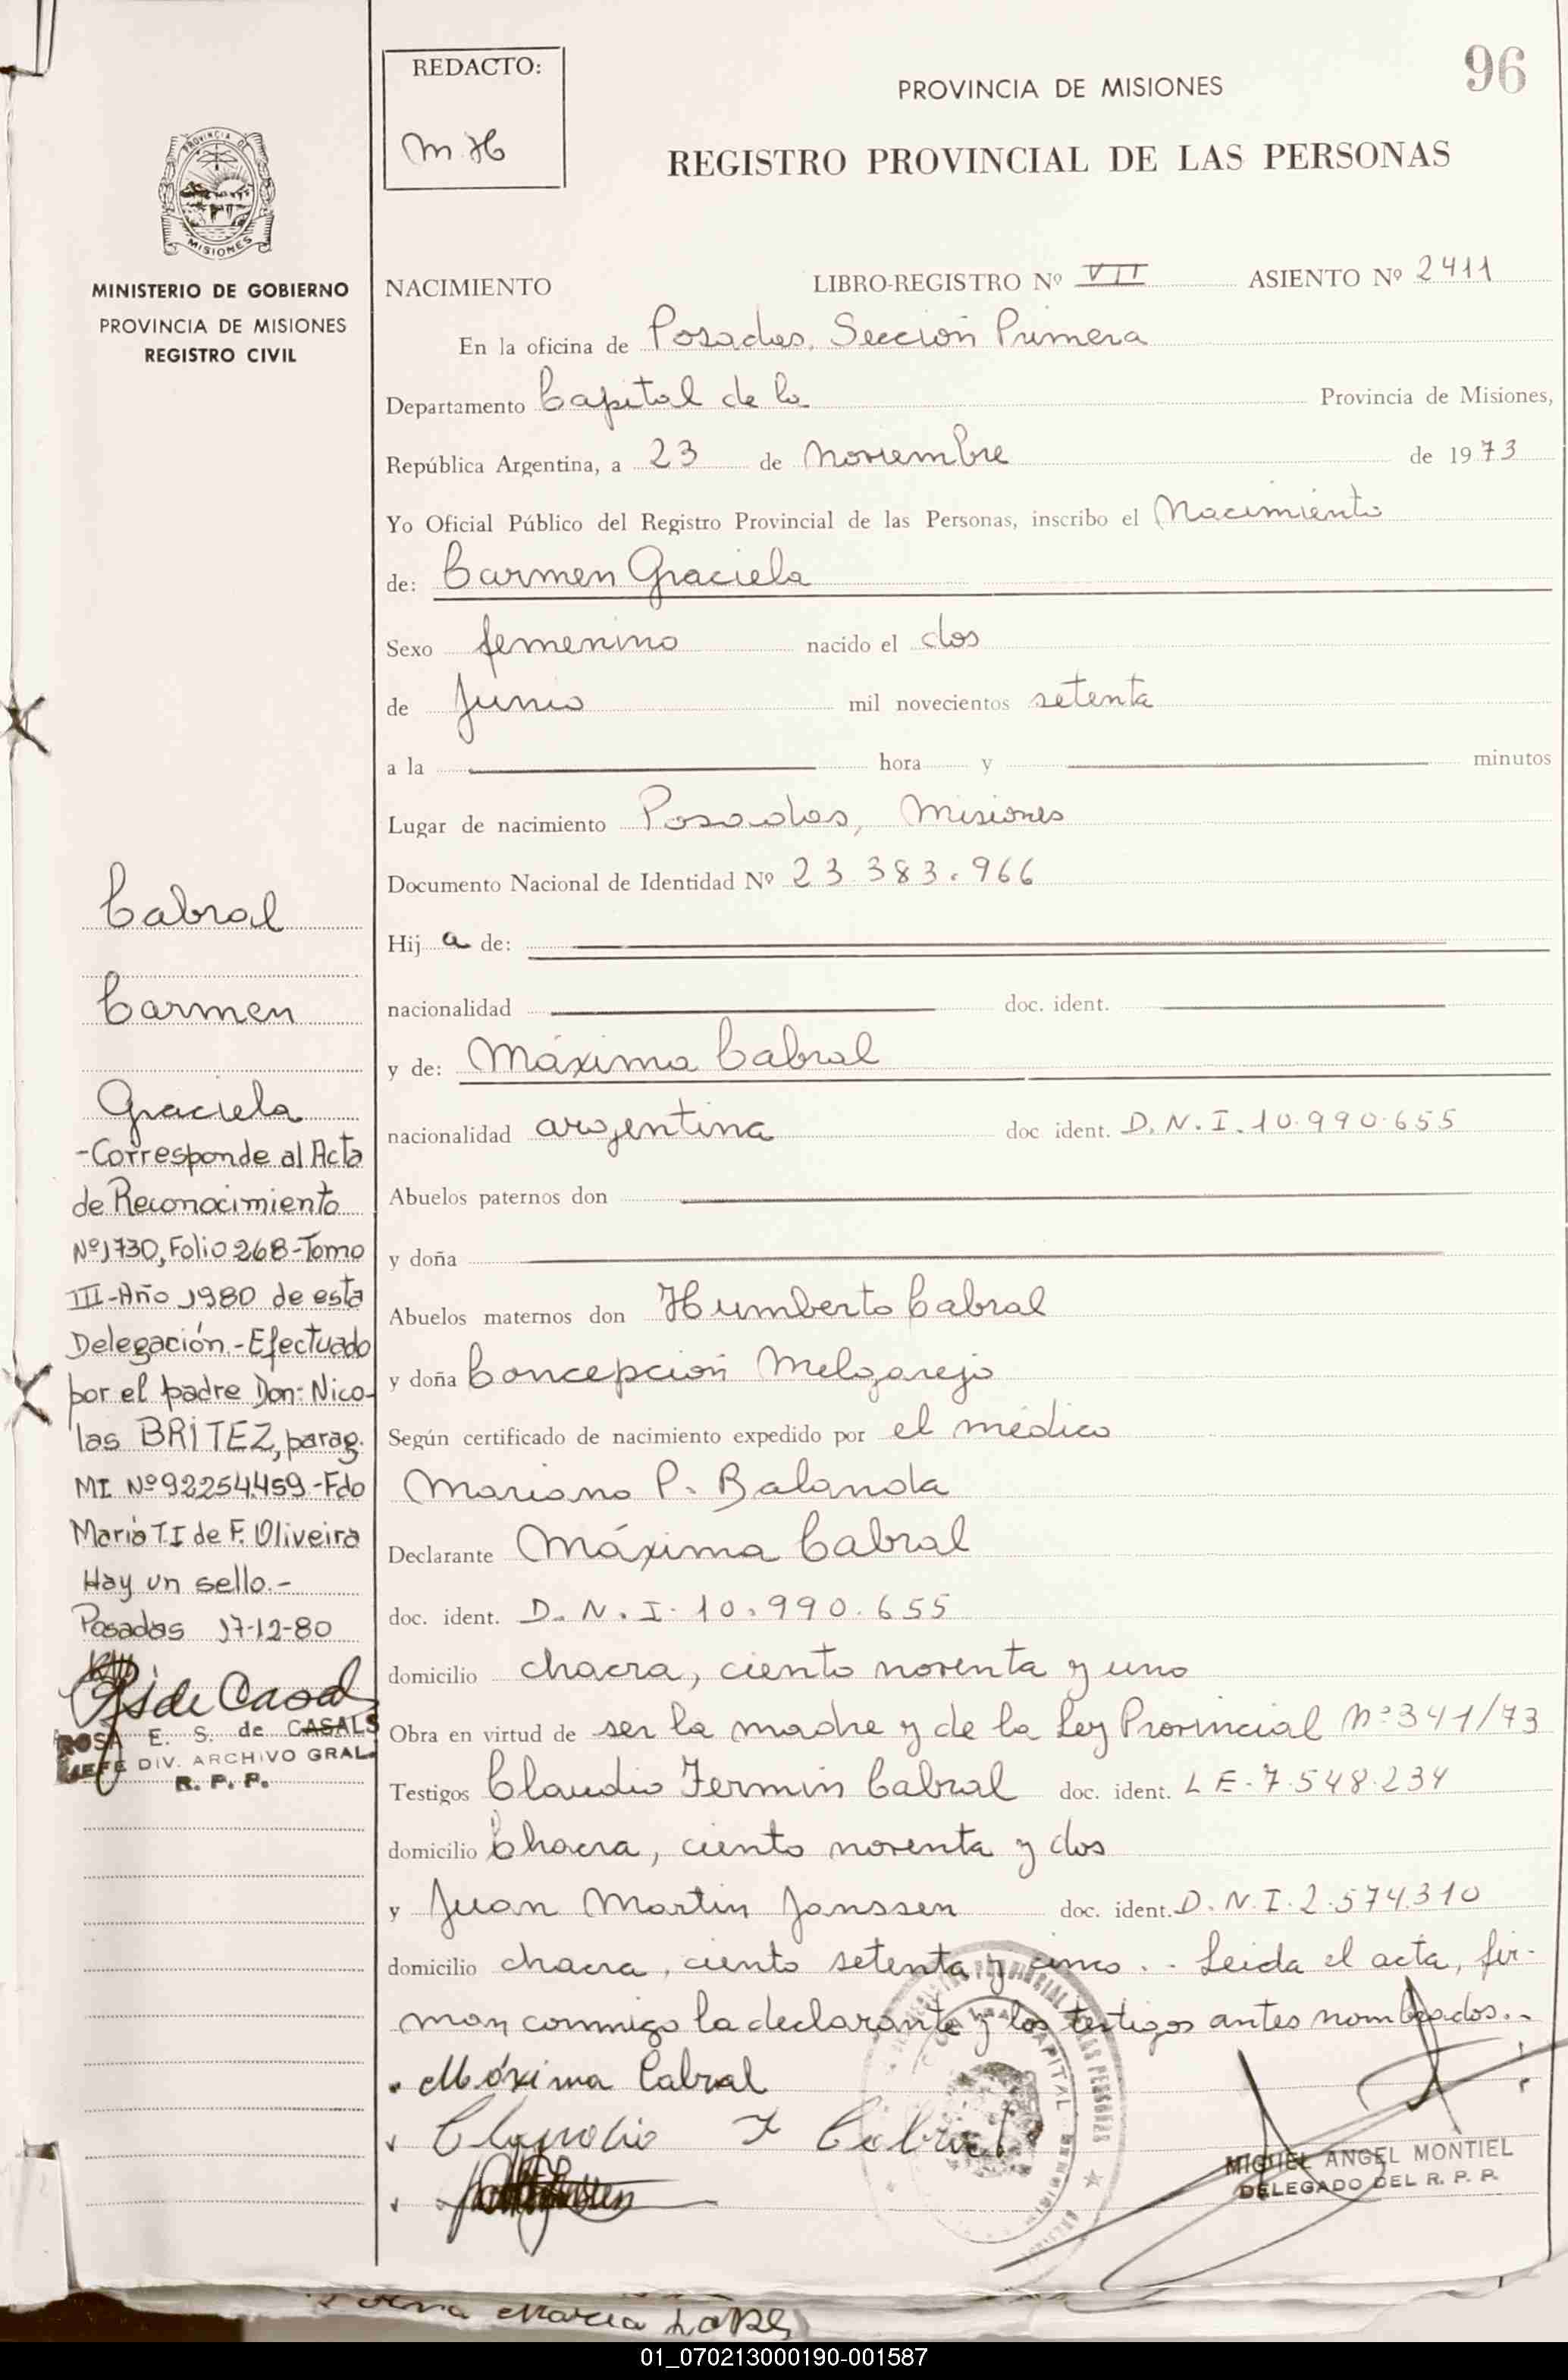 96
REDACTO:
M.H
PROVINCIA DE MISIONES
REGISTRO PROVINCIAL DE LAS PERSONAS
PROVINCIA DE
MISIONES
MINISTERIO DE GOBIERNO
PROVINCIA DE MISIONES
REGISTRO CIVIL
NACIMIENTO LIBRO-REGISTRO Nº VII ASIENTO Nº 2411
En la oficina de Posadas, Sección Primera
Departamento Capital de la Provincia de Misiones,
República Argentina, a 23 de Noviembre de 1973
Yo Oficial Público del Registro Provincial de las Personas, inscribo el Nacimiento
de: Carmen Graciela
Sexo femenino nacido el dos
de Junio mil novecientos setenta
a la hora y minutos
Lugar de nacimiento Posadas, Misiones
Documento Nacional de Identidad Nº 23.383.966
Hij a de:
nacionalidad doc. ident.
y de: Máxima Cabral
nacionalidad argentina doc ident. D.N.I. 10.990.655
Abuelos paternos don
y doña
Abuelos maternos don Humberto Cabral
y doña Concepción Melgarejo
Según certificado de nacimiento expedido por el médico
Mariano P. Balanda
Declarante Máxima Cabral
doc. ident. D.N.I. 10.990.655
domicilio chacra, ciento noventa y uno
Obra en virtud de ser la madre y de la Ley Provincial Nº 341/73
Testigos Claudio Fermin Cabral doc. ident. L E - 7.548.234
domicilio Chacra, ciento noventa y dos
y Juan Martin Janssen doc. ident. D.N.I. 2.574.310
domicilio chacra, ciento setenta y cinco.- Leida el acta, fir-
man conmigo la declarante y los testigos antes nombrados.-
Máxima Cabral
Claudio F Cabral
MIGUEL ANGEL MONTIEL
DELEGADO DEL R. P. P.
Cabral
Carmen
Graciela
-Corresponde al Acta
de Reconocimiento
Nº1730, Folio 268-Tomo
III-Año 1980 de esta
Delegación.-Efectuado
por el padre Don: Nico-
las BRITEZ, parag.
MI Nº92254.459-Fdo
Maria T.I de F. Oliveira
Hay un sello.-
Posadas 17-12-80
ROSA E. S. de CASALS
JEFE DIV. ARCHIVO GRAL.
R. P. P.
01_070213000190-001587